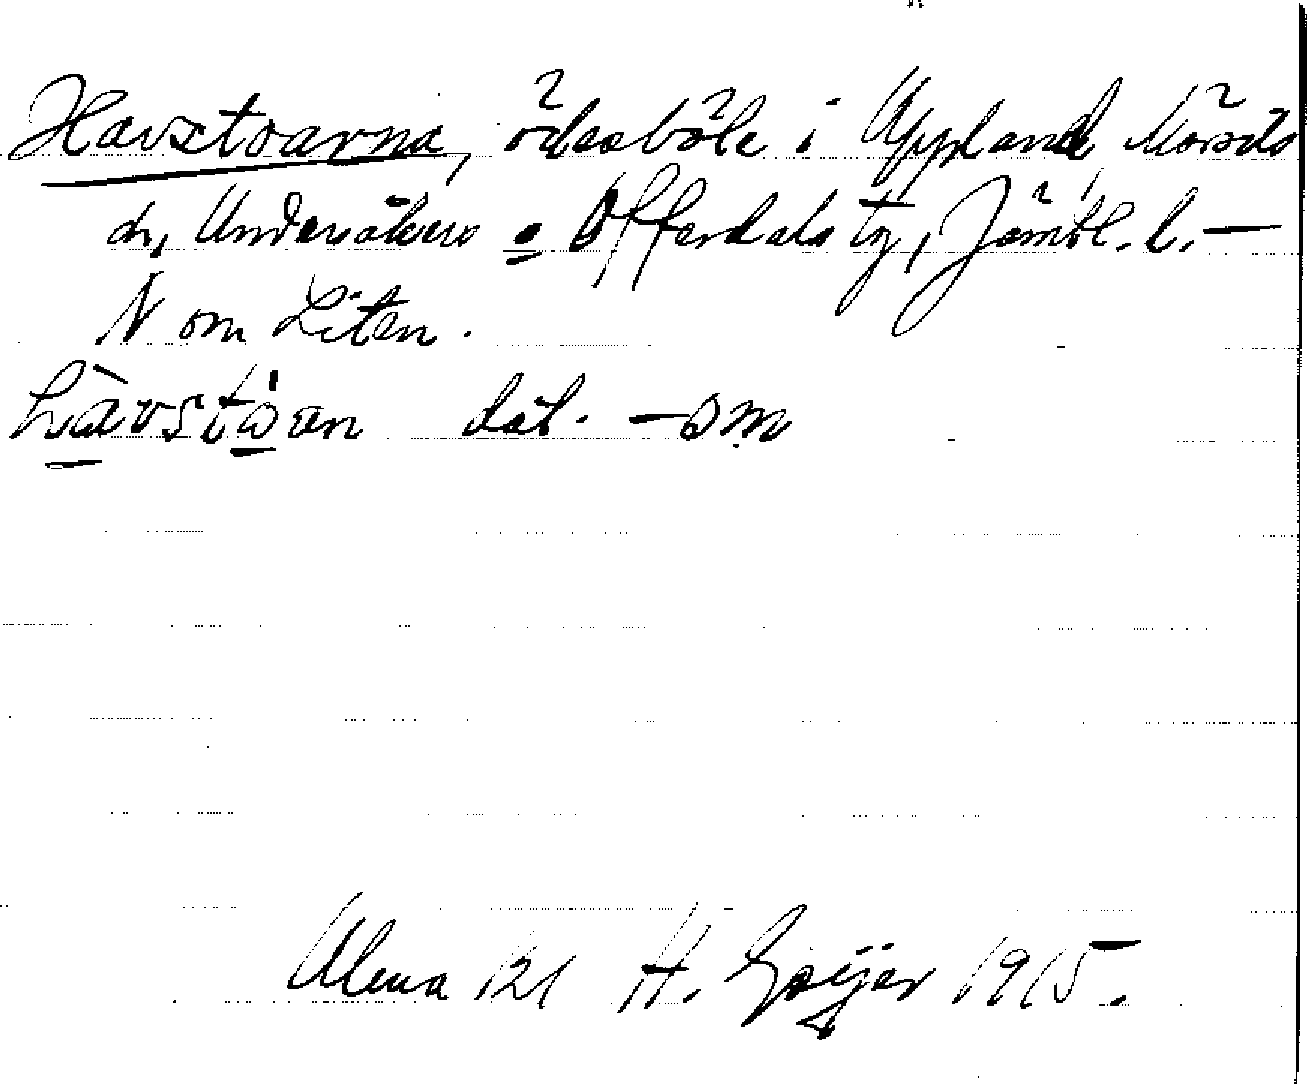 Havstoarna, ödesböle i Uppland, Mörsils
sn, Undersåkers o Offerdals tg, Jämtl. l. —
N om Liten.
hàvstòan dat. -om
Ulma 121 H. Geijer 1915.